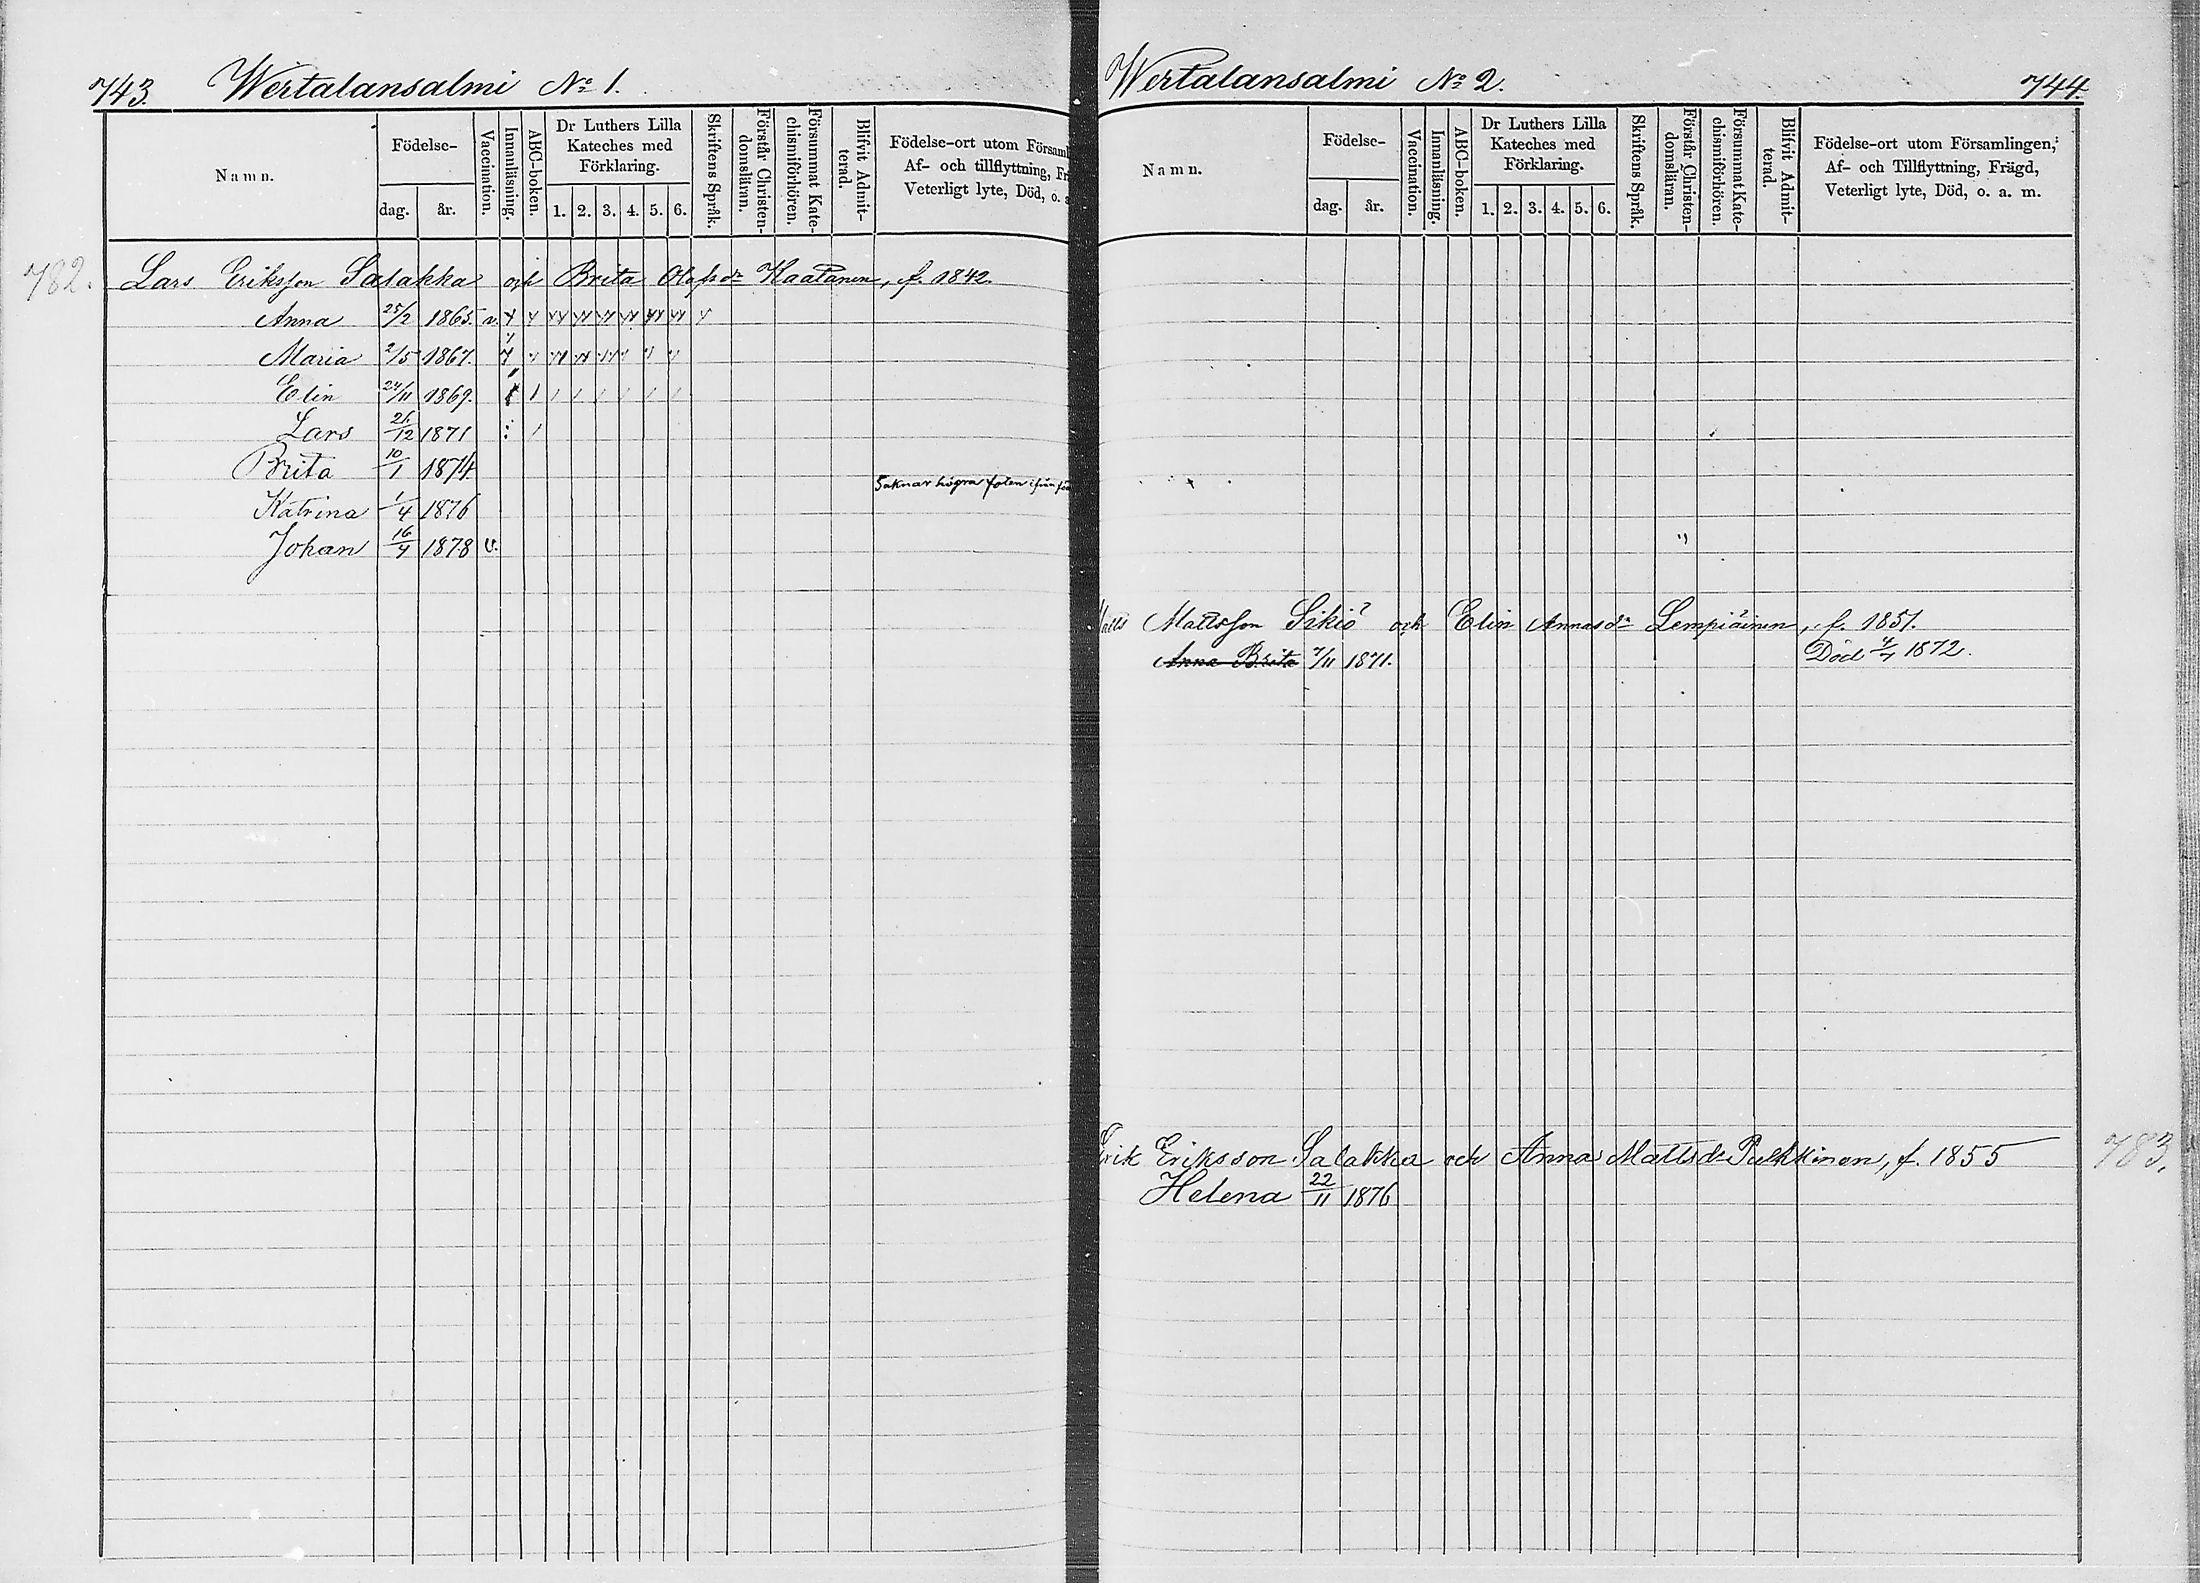 743. Wertalansalmi No 1.
Namn.
Födelse-
dag. år.
Vaccination.
Innanläsning.
ABC-boken.
Dr Luthers Lilla
Kateches med
Förklaring.
1. 2. 3. 4. 5. 6.
Skriftens Språk.
Förstår Christen-
domsläran.
Försummat Kate-
chismiförhören.
Blifvit Admit-
terad.
Födelse-ort utom Församl
Af- och tillflyttning, Fr
Veterligt lyte, Död, o. a
782. Lars Eriksson Salakka och Brita Olofsdr Kaatanen, f. 1842.
Anna 25/2 1865. v.
Maria 2/5 1867.
Elin 24/11 1869.
Lars 21/12 1871
Brita 10/1 1874.
Saknar högra foten
Katrina 1/4 1876
Johan 16/4 1878 v.
Wertalansalmi No 2. 744.
Namn.
Födelse-
dag. år.
Vaccination.
Innanläsning.
ABC-boken.
Dr Luthers Lilla
Kateches med
Förklaring.
1. 2. 3. 4. 5. 6.
Skriftens Språk.
Förstår Christen-
domsläran.
Försummat Kate-
chismiförhören.
Blifvit Admit-
terad.
Födelse-ort utom Församlingen,
Af- och Tillflyttning, Frägd,
Veterligt lyte, Död, o. a. m.
Matts Mattsson Sikiö och Elin Annasdr Lempiäinen, f. 1851.
Anna Brita 7/11 1871. Död 4/7 1872.
Erik Eriksson Salakka och Anna Mattsdr Pulkkinen, f. 1855 783.
Helena 22/11 1876